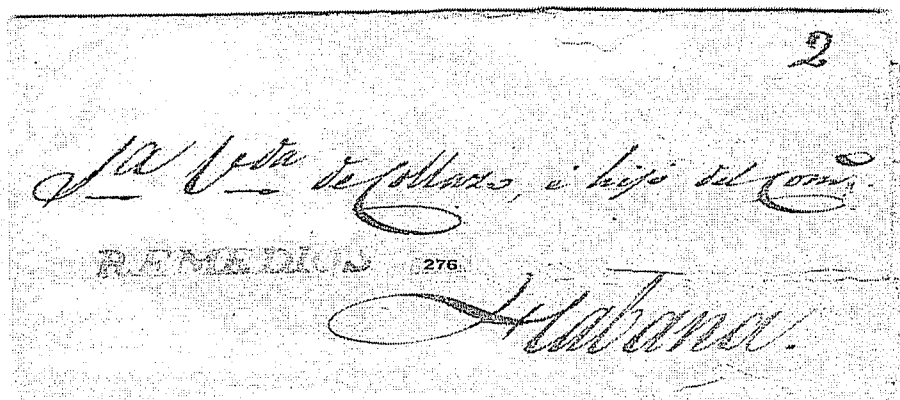 2
Sra Vda de Collazo, é hijo del Com.º
REMEDIOS 276
Habana.